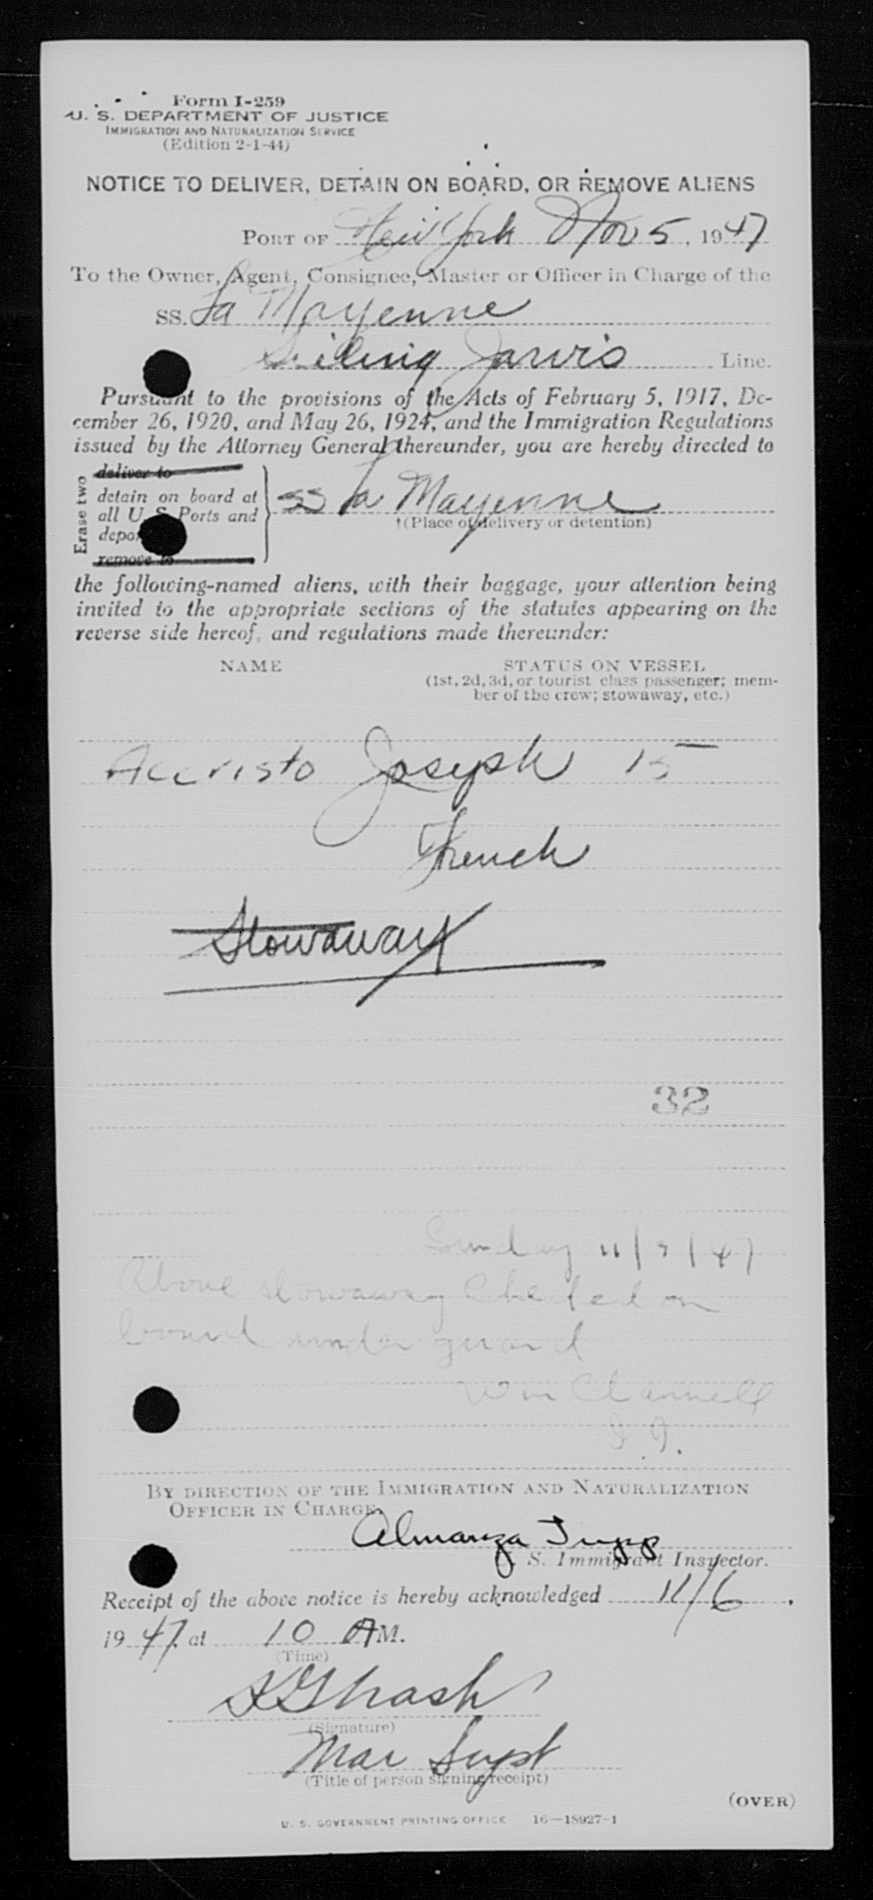 Form I-259
U. S. DEPARTMENT OF JUSTICE
IMMIGRATION AND NATURALIZATION SERVICE
(Edition 2-1-44)
NOTICE TO DELIVER, DETAIN ON BOARD, OR REMOVE ALIENS
PORT OF New York Nov 5, 1947
To the Owner, Agent, Consignee, Master or Officer in Charge of the
SS. La Mayenne
Jarvis Line.
Pursuant to the provisions of the Acts of February 5, 1917, De-
cember 26, 1920, and May 26, 1924, and the Immigration Regulations
issued by the Attorney General thereunder, you are hereby directed to
Erase two
deliver to
detain on board at
all U S Ports and
depor
remove to
SS La Mayenne
†(Place of delivery or detention)
the following-named aliens, with their baggage, your attention being
invited to the appropriate sections of the statutes appearing on the
reverse side hereof, and regulations made thereunder:
NAME STATUS ON VESSEL
(1st, 2d, 3d, or tourist class passenger; mem-
ber of the crew; stowaway, etc.)
Accristo Joseph 15
French
Stowaway
32
Sunday 11/9/47
Above stowaway Checked on
board under guard
Wm
By direction of the Immigration and Naturalization
Officer in Charge
Almanza Tripp
S. Immigrant Inspector.
Receipt of the above notice is hereby acknowledged 11/6.
1947. at 10 AM.
(Time)
(Signature)
Mar Supt
(Title of person signing receipt)
(OVER)
U. S. GOVERNMENT PRINTING OFFICE 16—18927-1